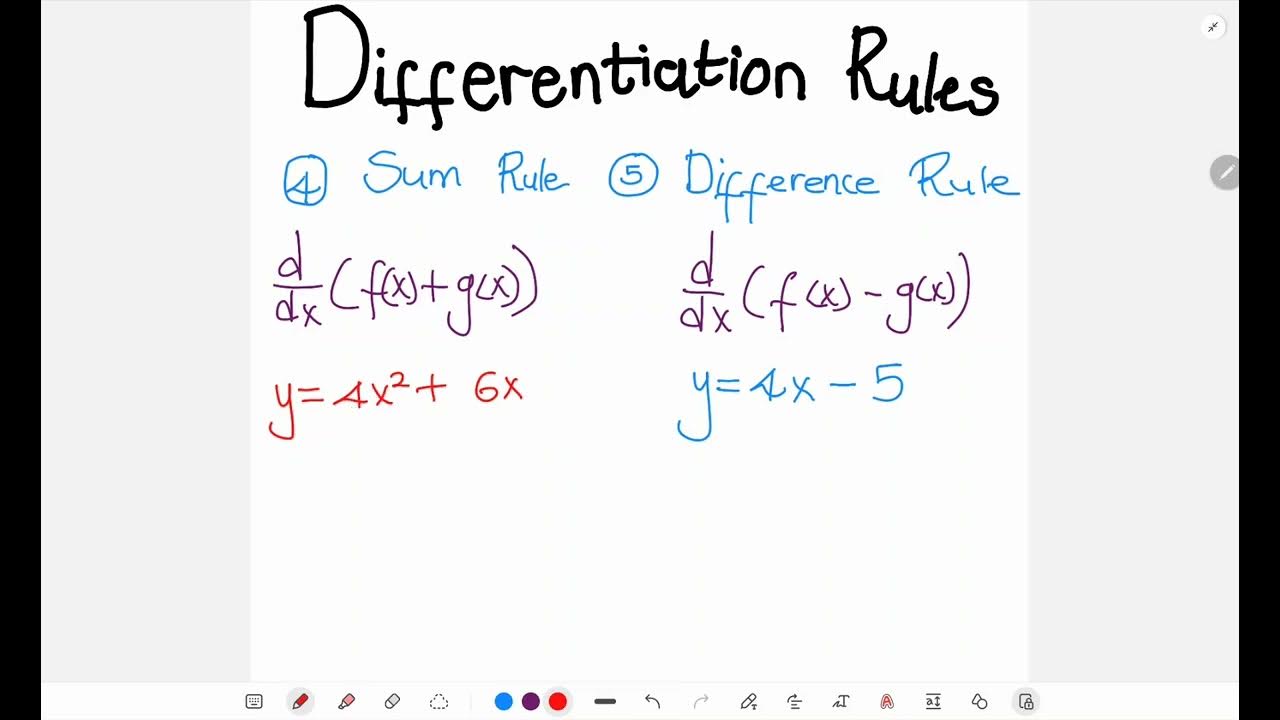 Differentiation Rules
④ Sum Rule ⑤ Difference Rule
d/dx (f(x) + g(x))
d/dx (f(x) - g(x))
y = 4x² + 6x
y = 4x - 5